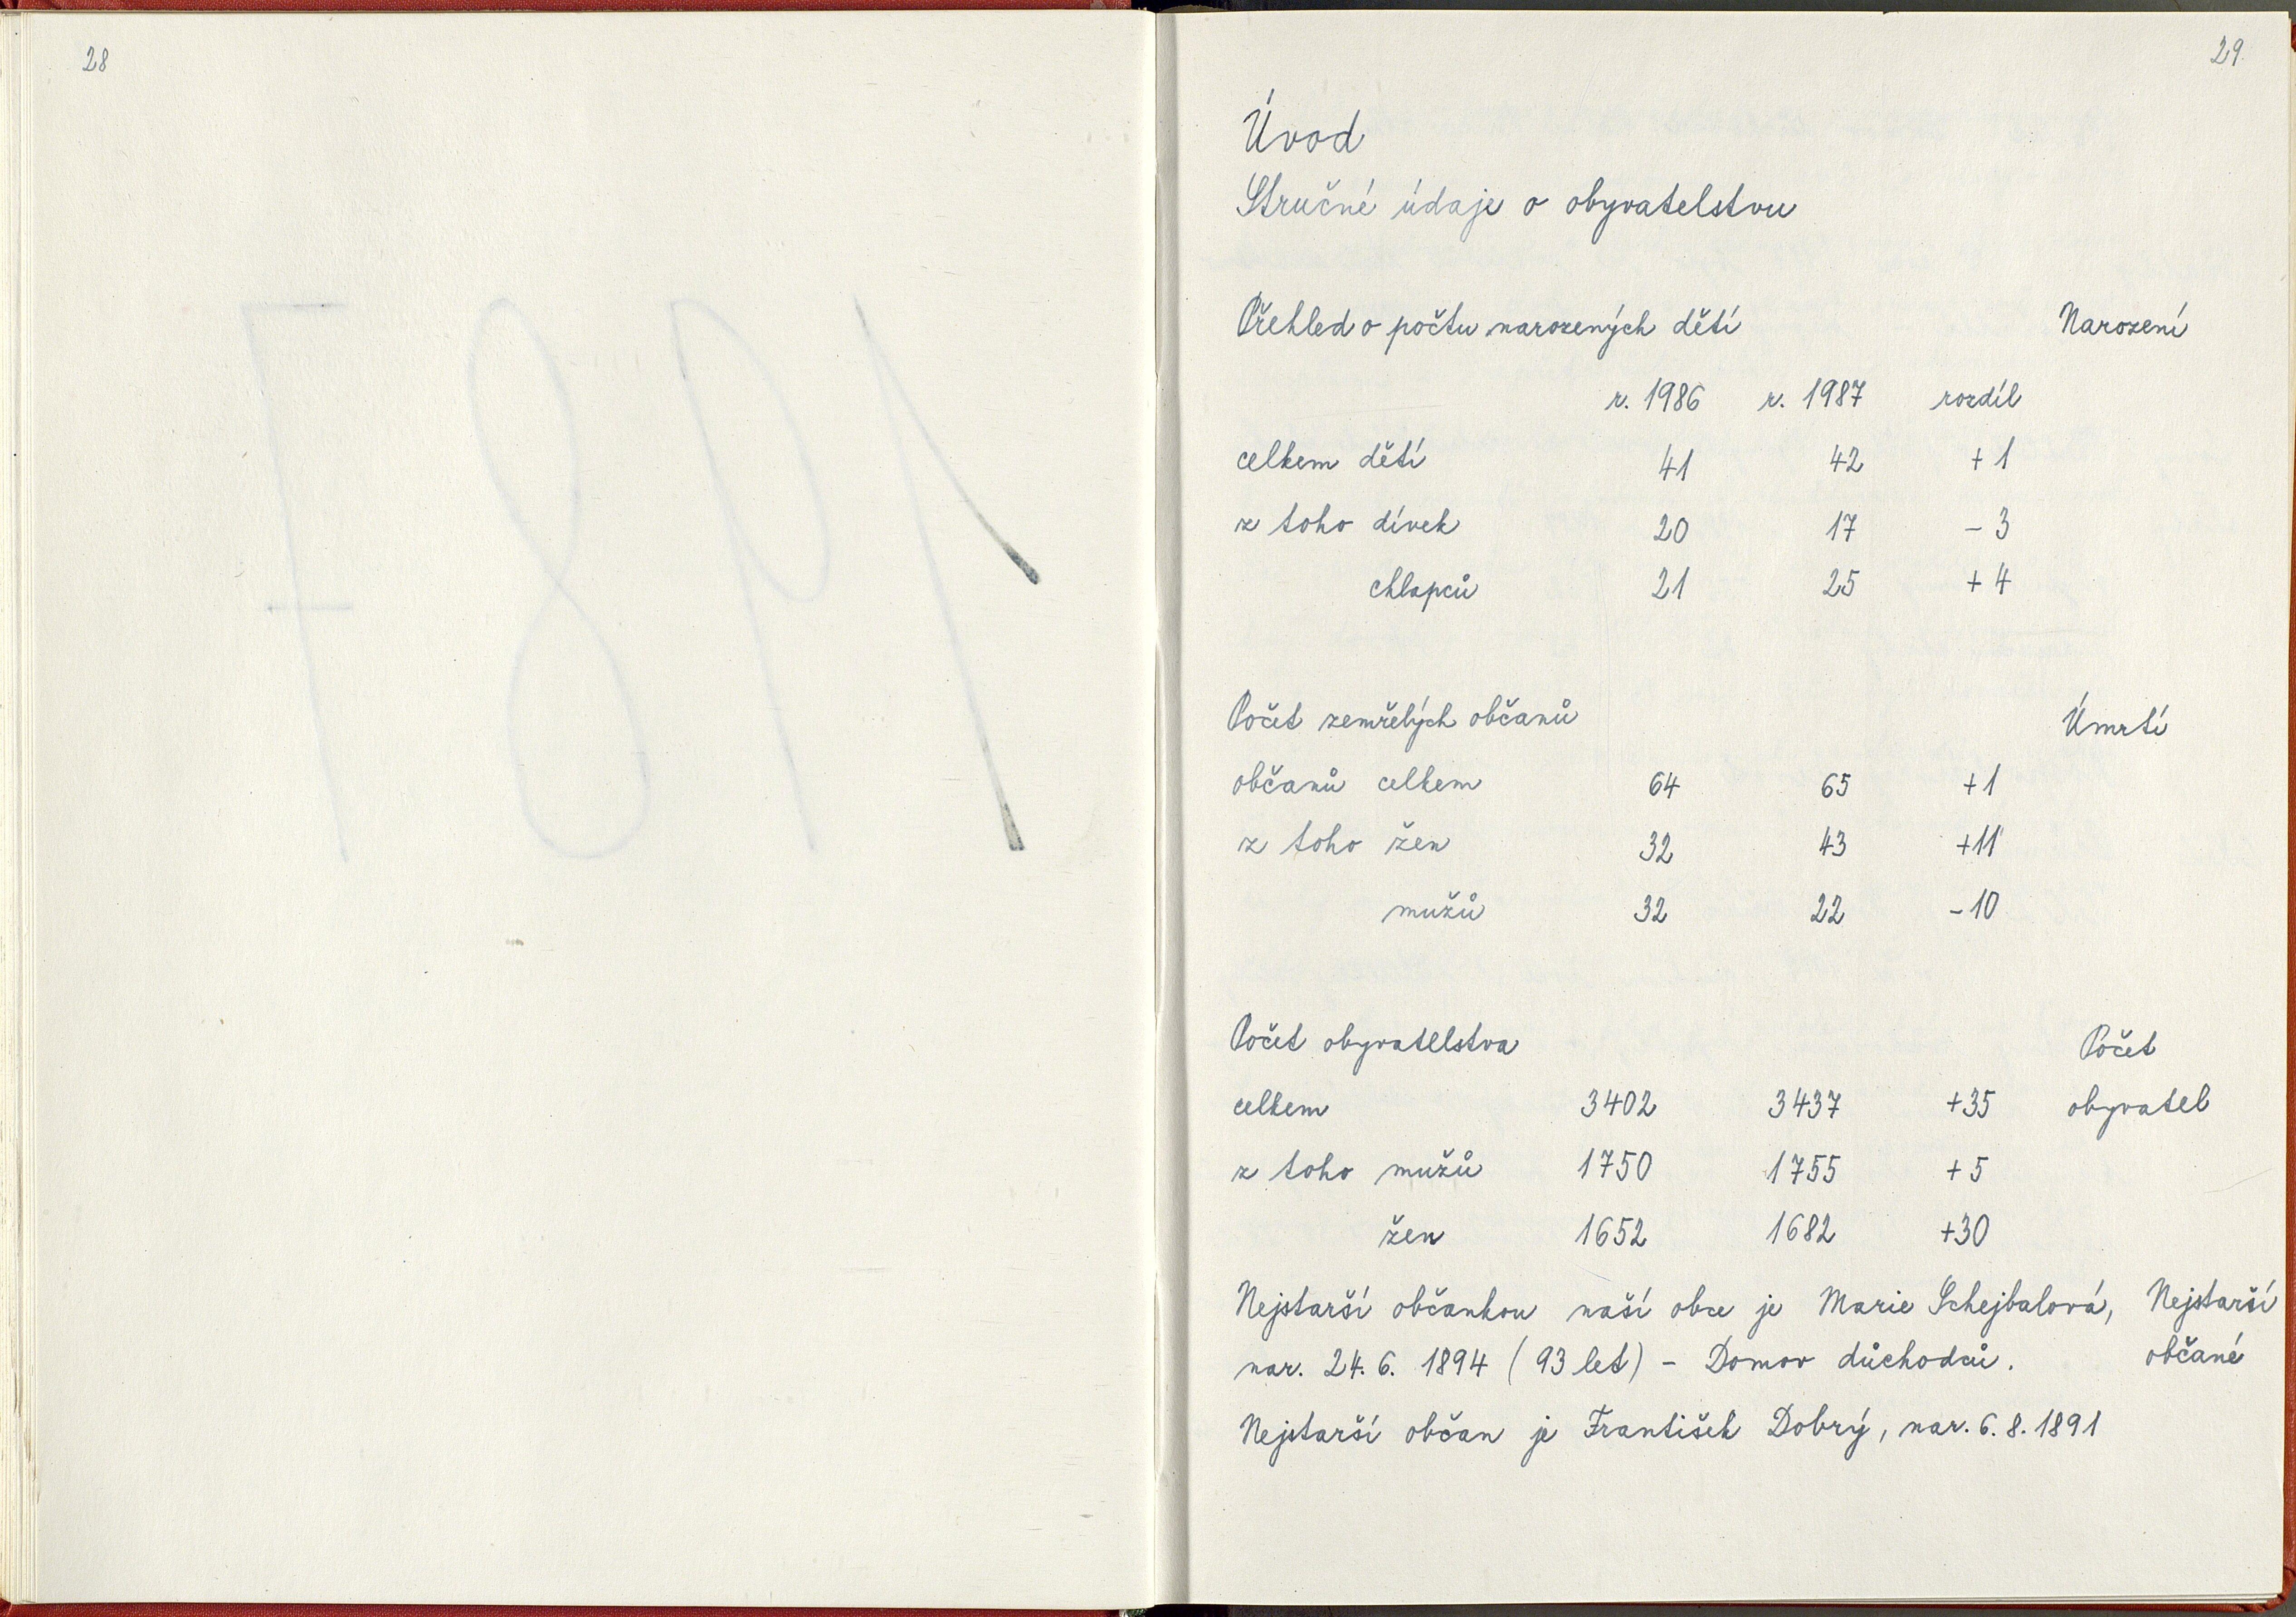 28
29
Úvod
Stručné údaje o obyvatelstvu
Přehled o počtu narozených dětí Narození
r. 1986 r. 1987 rozdíl
celkem dětí 41 42 +1
z toho dívek 20 17 -3
chlapců 21 25 +4
Počet zemřelých občanů Úmrtí
občanů celkem 64 65 +1
z toho žen 32 43 +11
mužů 32 22 -10
Počet obyvatelstva Počet
celkem 3402 3437 +35 obyvatel
z toho mužů 1750 1755 +5
žen 1652 1682 +30
Nejstarší občankou naší obce je Marie Schejbalová, Nejstarší
nar. 24. 6. 1894 (93 let) - Domov důchodců. občané
Nejstarší občan je František Dobrý, nar. 6. 8. 1891